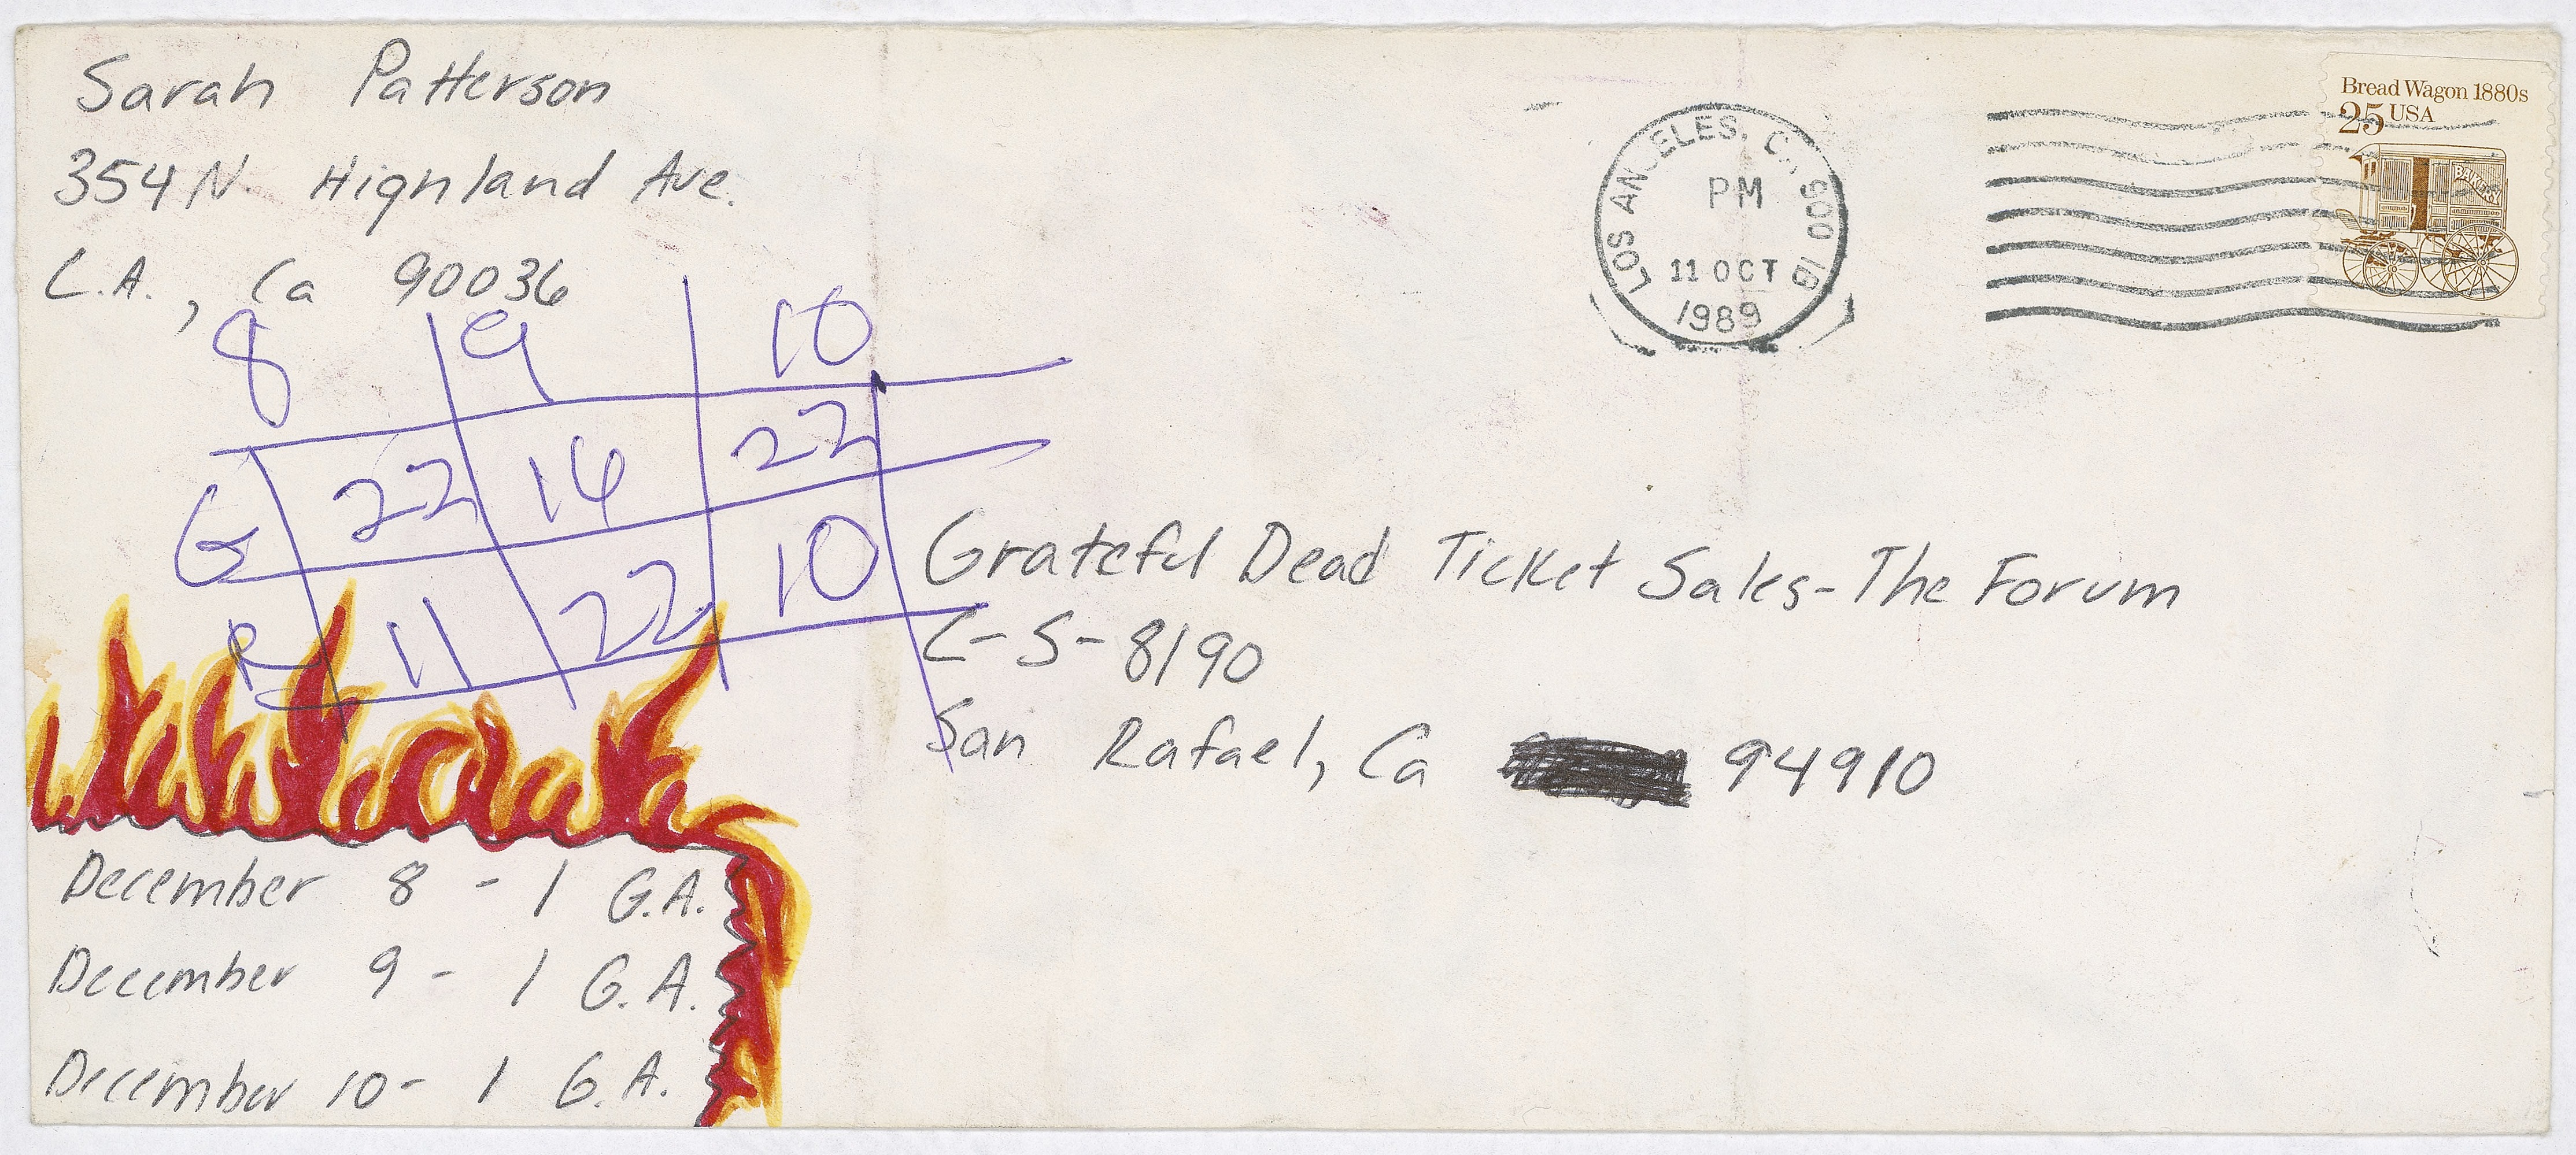 Sarah Patterson
354 N. Highland Ave.
L.A., Ca 90036
LOS ANGELES, CA 900
PM
11 OCT
1989
Bread Wagon 1880s
25 USA
BAKERY
8 9 10
G 22 14 22
R 11 22 10
Grateful Dead Ticket Sales-The Forum
C-S-8190
San Rafael, Ca 94910
December 8 - 1 G.A.
December 9 - 1 G.A.
December 10 - 1 G.A.